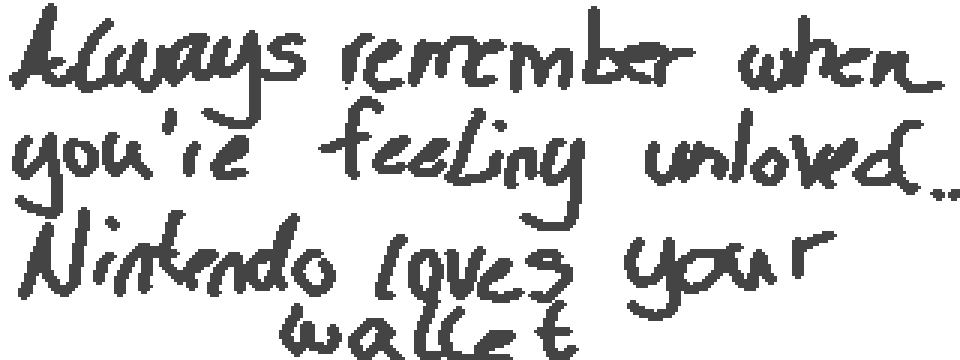 Always remember when
you're feeling unloved..
Nintendo loves your
wallet